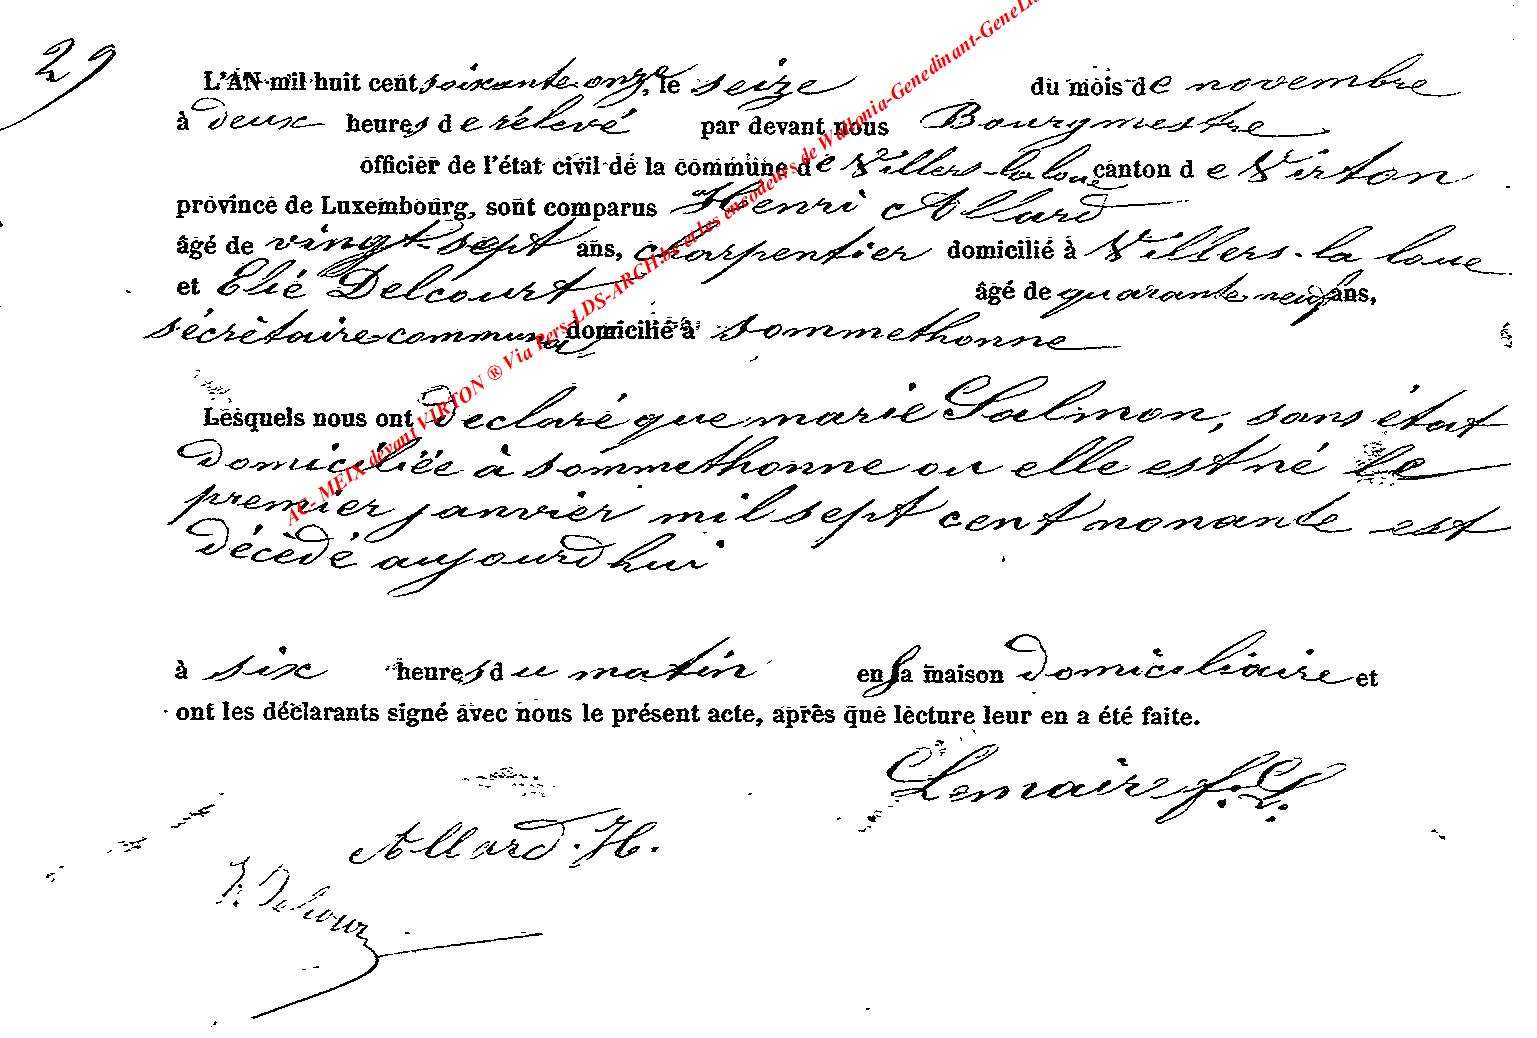 29
L'AN mil huit cent soixante onze, le seize du mois de novembre
à deux heures de rélevé par devant nous Bourgmestre
officier de l'état civil de la commune de Villers-la loue canton de Virton
province de Luxembourg, sont comparus Henri Allard
âgé de vingt-sept ans, charpentier domicilié à Villers-la loue
et Elié Delcourt âgé de quarante neuf ans,
sécrétaire communal domicilié à sommethonne
Lesquels nous ont declaré que marie Salmon, sans état
domiciliée à sommethonne ou elle est né le
premier janvier mil sept cent nonante est
décèdé aujourdhui
à six heures du matin en sa maison domiciliaire et
ont les déclarants signé avec nous le présent acte, après que lecture leur en a été faite.
Lemaire f. L.
Allard. H.
AC- MEIX devant VIRTON ® Via Pers-LDS-ARCH.be et les encodeurs de Wallonia-Genedinant-GeneLi